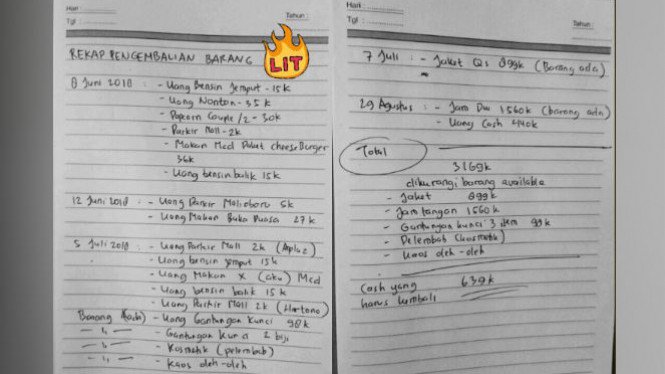 Hari :
Tgl :
Tahun :
REKAP PENGEMBALIAN BARANG
LIT
8 Juni 2018 : - Uang Bensin Jemput - 15k
- Uang Nonton - 35k
- Popcorn Couple /2 - 30k
- Parkir Mall - 2k
- Makan Mcd Paket cheese Burger
36k
- Uang bensin balik 15k
12 Juni 2018 : - Uang Parkir Malioboro 5k
- Uang Makan Buka Puasa 27k
5 Juli 2018 : - Uang Parkir Mall 2k (Aplaz)
- Uang bensin jemput 15k
- Uang Makan X (aku) Mcd
- Uang bensin balik 15k
- Uang Parkir Mall 2k (Hartono)
Barang - Uang Gantungan kunci 98k
- Gantungan Kunci 2 biji
- Kosmetik (pelembab)
- Kaos oleh-oleh
Hari :
Tgl :
Tahun :
7 Juli : - Jaket 899k (Barang ada)
29 Agustus : - Jam DW 1560k (barang ada)
- Uang Cash 440k
Total
3169k
dikurangi barang available
- Jaket 899k
- Jam tangan 1560k
- Gantungan kunci 3 99k
- Pelembab (kosmetik)
- Kaos oleh-oleh
Cash yang 639k
harus kembali